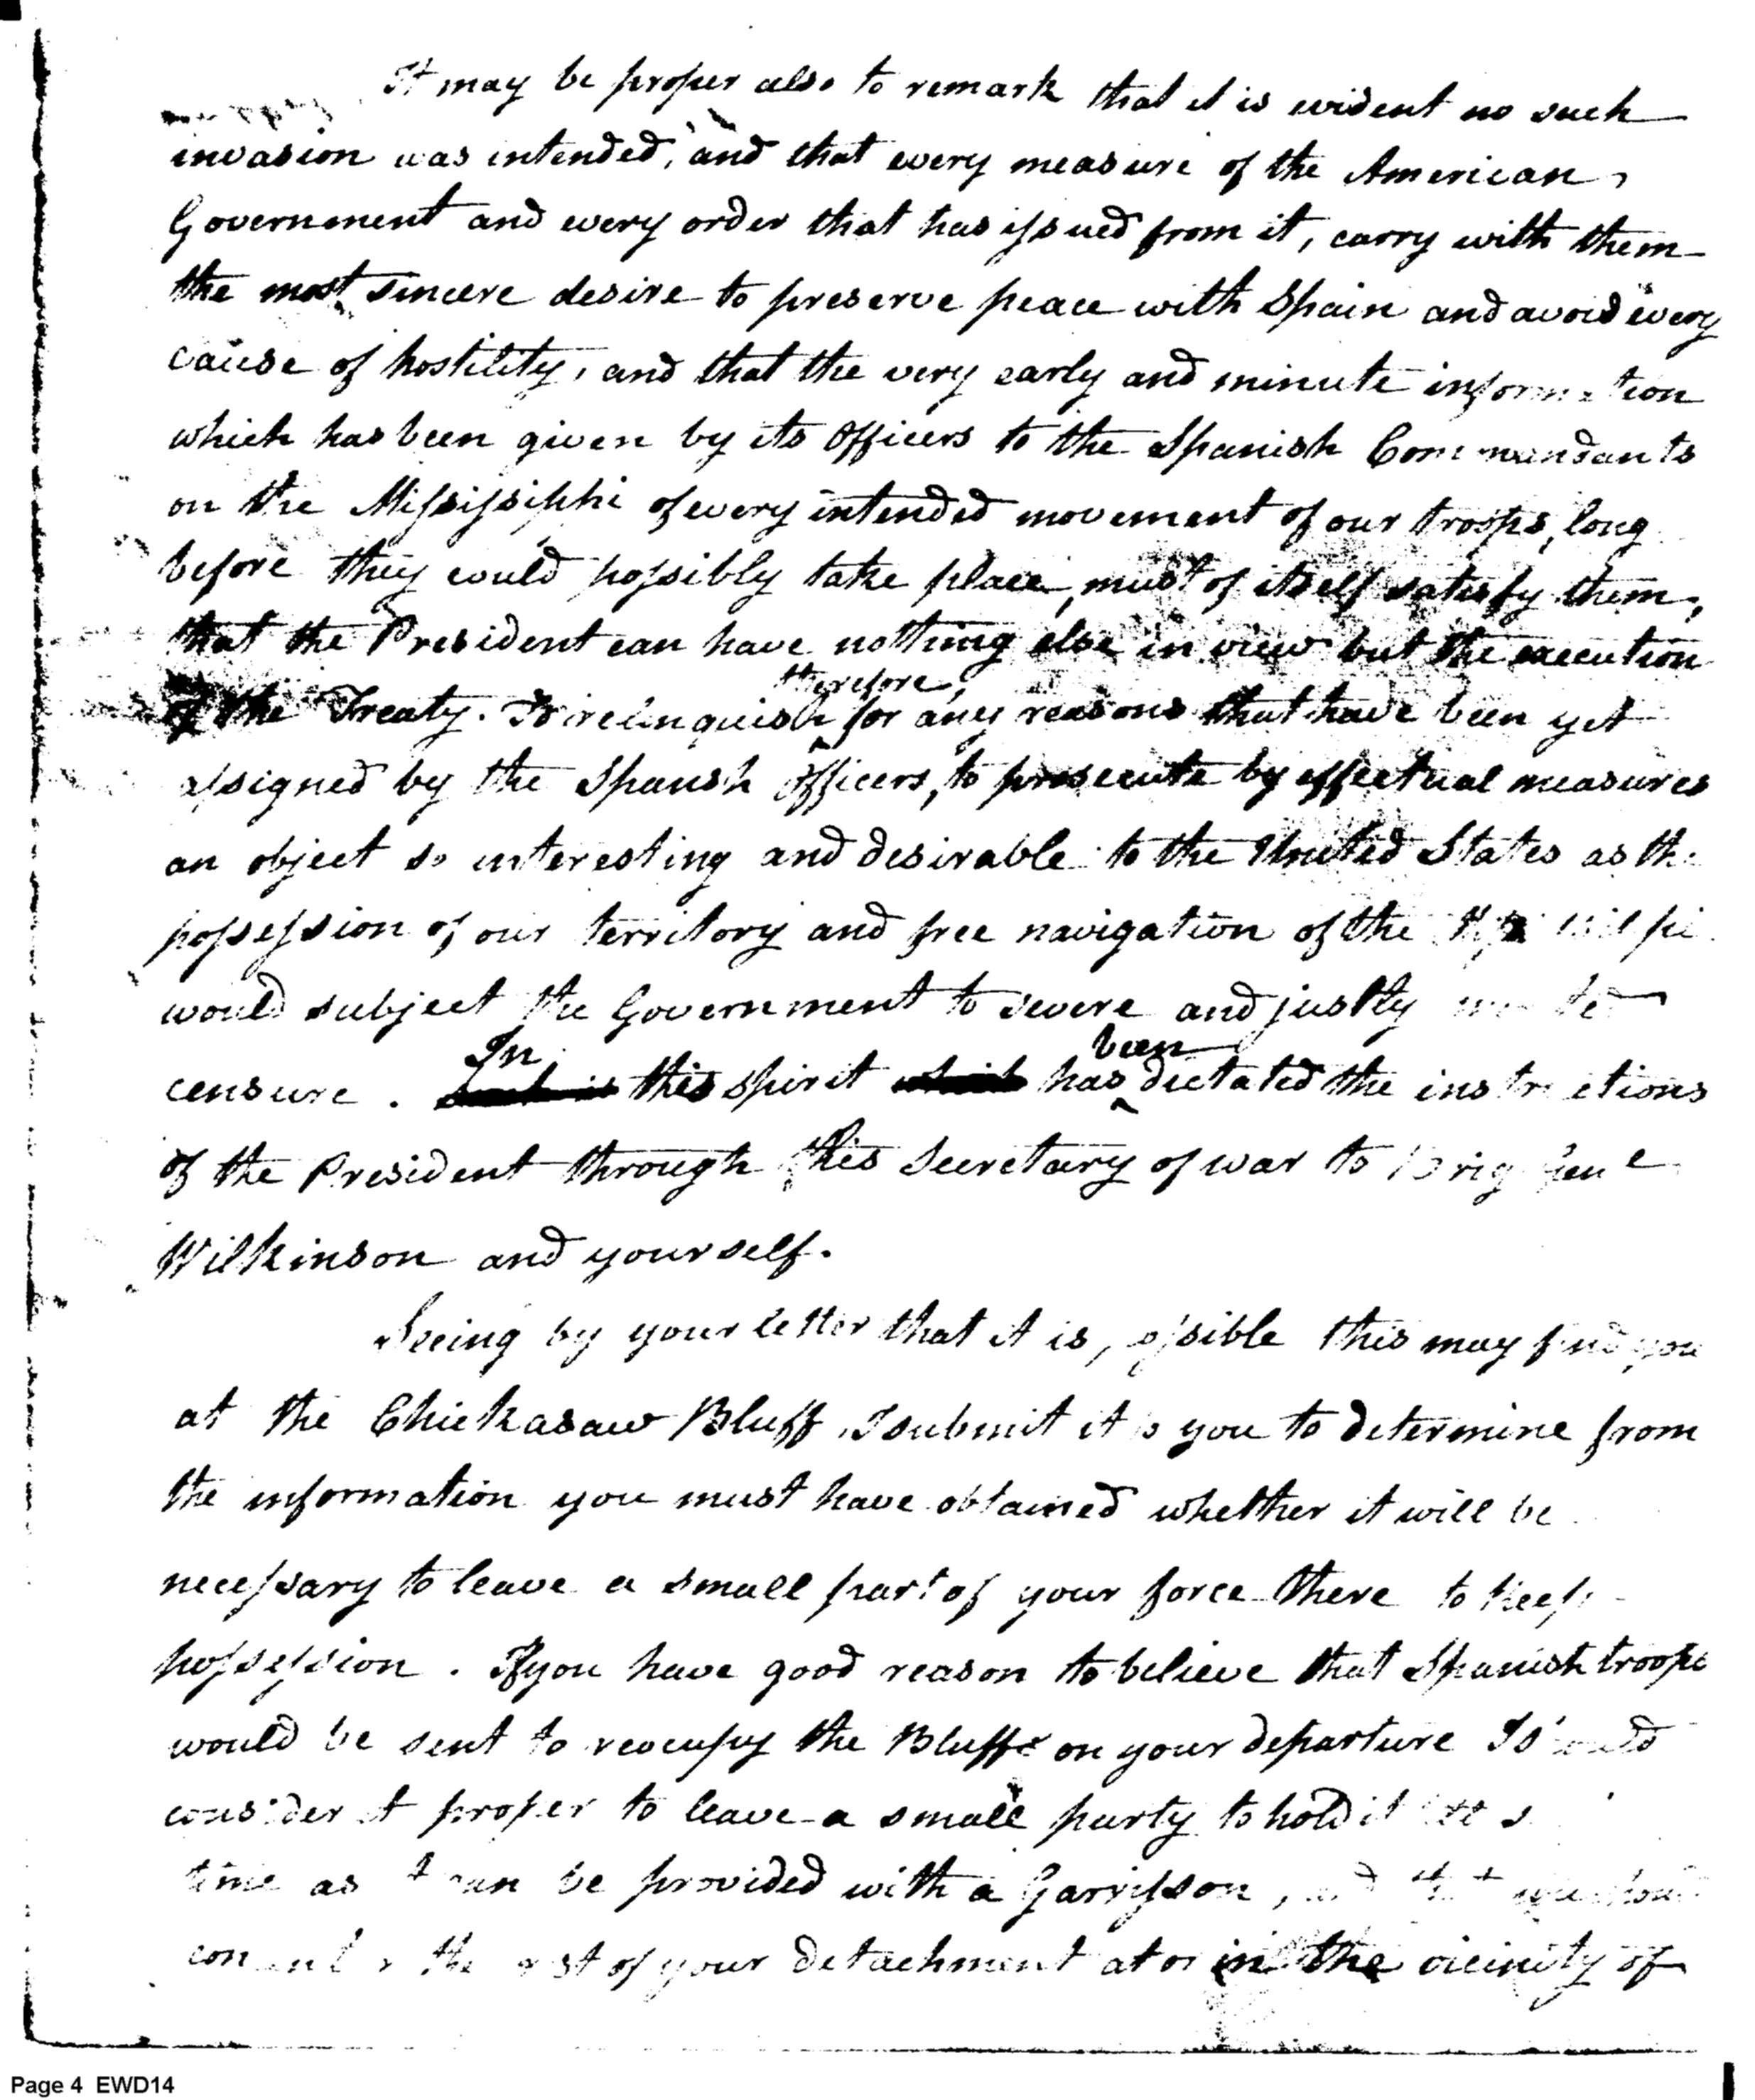 It may be proper also to remark that it is evident no such
invasion was intended, and that every measure of the American
Government and every order that has issued from it, carry with them
the most sincere desire to preserve peace with Spain and avoid every
cause of hostility, and that the very early and minute information
which has been given by its Officers to the Spanish Commandants
on the Missisippi of every intended movement of our troops, long
before they could possibly take place, must of itself satisfy them,
that the President can have nothing else in view but the execution
therefore,
of the Treaty. To relinquish for any reasons that have been yet
assigned by the Spanish Officers, to prosecute by effectual measures
an object so interesting and desirable to the United States as the
possession of our territory and free navigation of the
would subject the Government to severe and justly
In been
censure. this spirit has dictated the instructions
of the President through his Secretary of war to Brig Gen
Wilkinson and yourself.
Seeing by your letter that it is possible this may find you
at the Chickasaw Bluff, I submit it to you to determine from
the information you must have obtained whether it will be
necessary to leave a small part of your force there to keep
possession. If you have good reason to believe that Spanish troops
would be sent to reocupy the Bluffs on your departure I
consider it proper to leave a small party to hold it
time as it can be provided with a Garrisson, and that
the rest of your detachment at or in the vicinity of
Page 4 EWD14